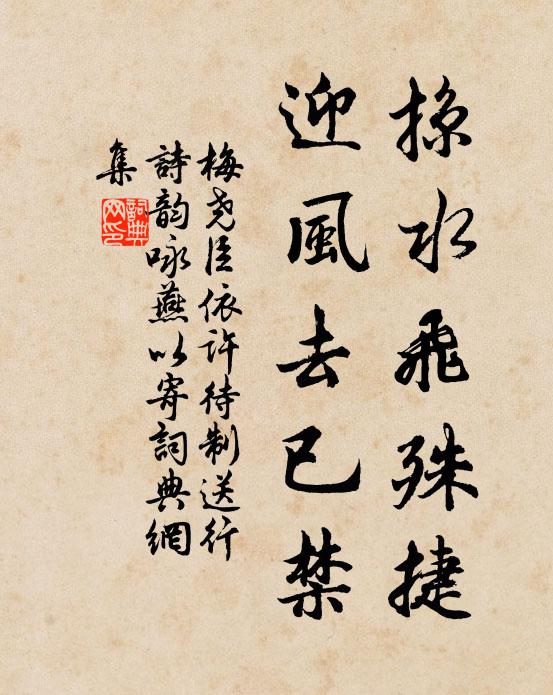 掠水飛殊捷
迎風去已禁
梅堯臣依許待制送行
詩韵咏燕以寄詞典網
集
詞典
网印